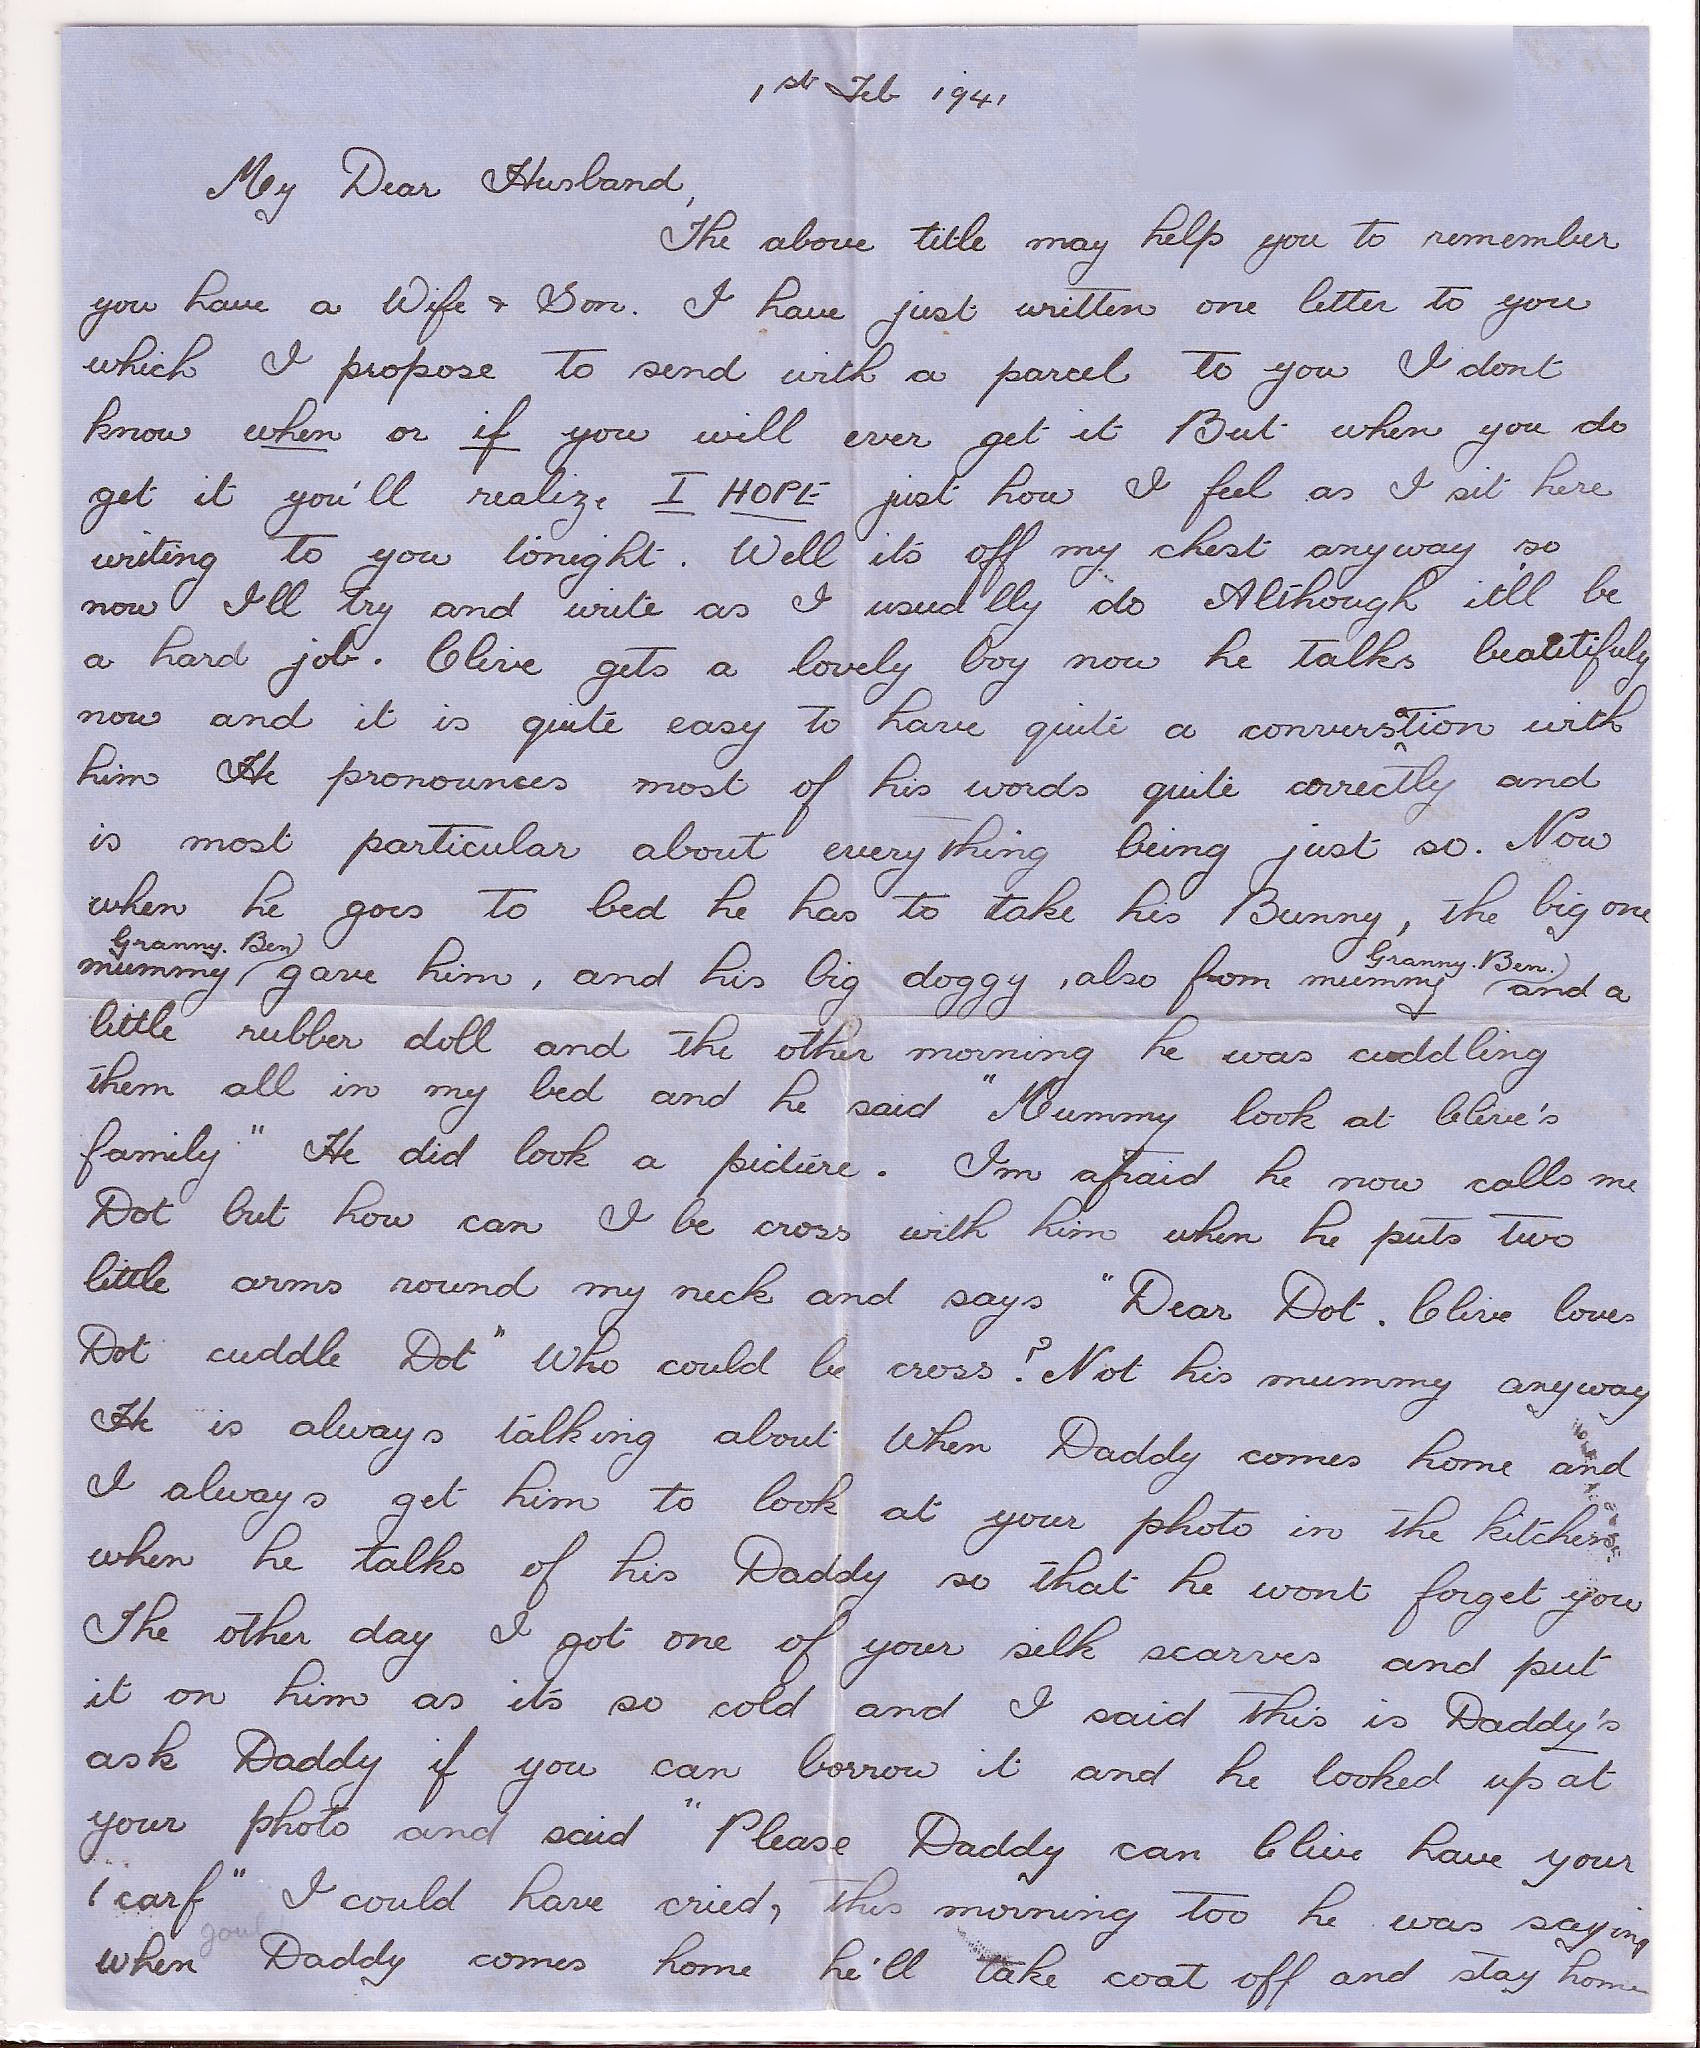 1st Feb 1941
My Dear Husband,
The above title may help you to remember
you have a Wife & Son. I have just written one letter to you
which I propose to send with a parcel to you I dont
know when or if you will ever get it But when you do
get it you'll realize I HOPE just how I feel as I sit here
writing to you tonight. Well its off my chest anyway so
now I'll try and write as I usually do Although it'll be
a hard job. Clive gets a lovely boy now he talks beautifuly
now and it is quite easy to have quite a conversation with
him He pronounces most of his words quite correctly and
is most particular about everything being just so. Now
when he goes to bed he has to take his Bunny, the big one
Granny. Ben) Granny. Ben.)
mummy gave him, and his big doggy, also from mummy and a
little rubber doll and the other morning he was cuddling
them all in my bed and he said "Mummy look at Clive's
family" He did look a picture. I'm afraid he now calls me
Dot but how can I be cross with him when he puts two
little arms round my neck and says "Dear Dot. Clive loves
Dot cuddle Dot" Who could be cross? Not his mummy anyway
He is always talking about When Daddy comes home and
I always get him to look at your photo in the kitchen
when he talks of his Daddy so that he wont forget you
The other day I got one of your silk scarves and put
it on him as its so cold and I said this is Daddy's
ask Daddy if you can borrow it and he looked up at
your photo and said "Please Daddy can Clive have your
scarf" I could have cried, this morning too he was saying
when Daddy comes home he'll take coat off and stay home